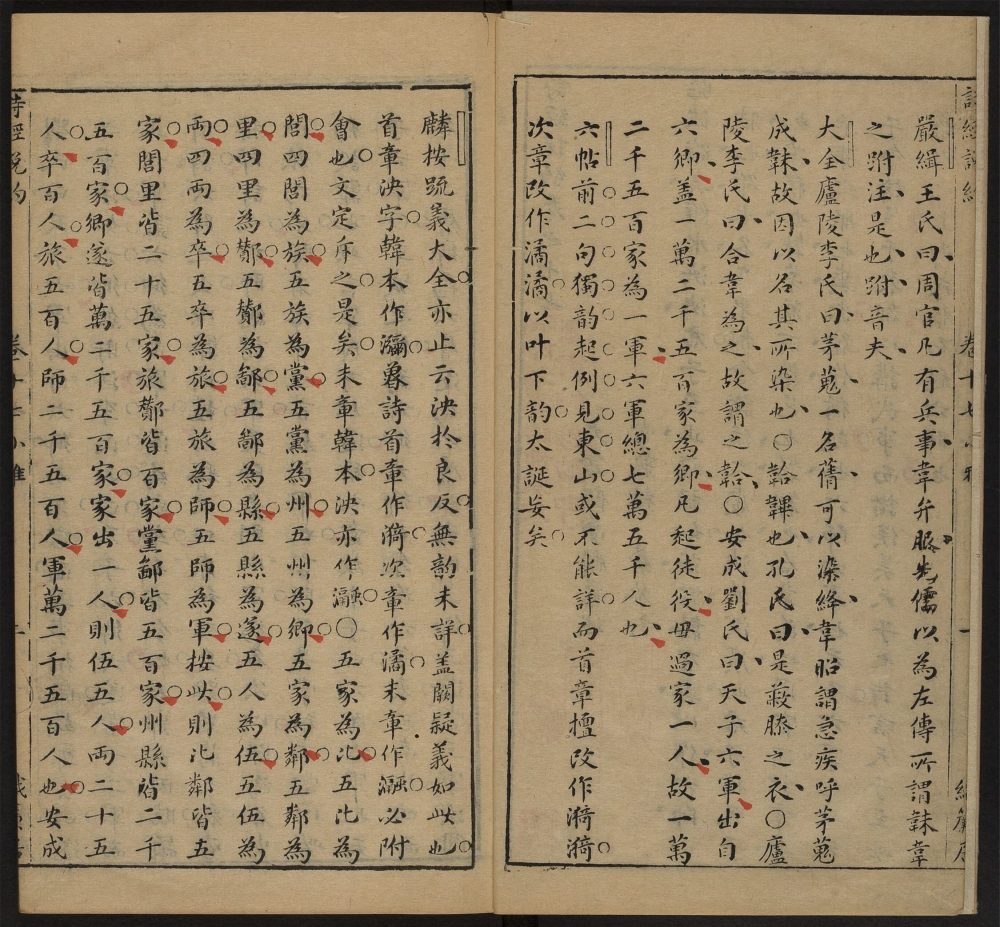 嚴緝王氏曰周官凡有兵事韋弁服先儒以為左傳所謂韎韋
之跗注是也跗音夫
大全廬陵李氏曰茅蒐一名蒨可以染絳韋昭謂急疾呼茅蒐
成韎故因以名其所染也○韐韠也孔氏曰是蔽膝之衣○廬
陵李氏曰合韋為之故謂之韐○安成劉氏曰天子六軍出自
六鄉盖一萬二千五百家為鄉凡起徒役毋過家一人故一萬
二千五百家為一軍六軍總七萬五千人也
六帖前二句獨韵起例見東山或不能詳而首章擅改作漪漪
次章改作潏潏以叶下韵太誕妄矣
卷十七小雅
一
麟按䟽義大全亦止云泱扵良反無韵未詳盖闕疑義如此也
首章泱字韓本作瀰畧詩首章作漪次章作潏末章作瀜必附
會也文定斥之是矣末章韓本泱亦作瀜○五家為比五比為
閭四閭為族五族為黨五黨為州五州為鄉五家為鄰五鄰為
里四里為酇五酇為鄙五鄙為縣五縣為遂五人為伍五伍為
兩四兩為卒五卒為旅五旅為師五師為軍按此則比鄰皆五
家閭里皆二十五家旅酇皆百家黨鄙皆五百家州縣皆二千
五百家鄉遂皆萬二千五百家家出一人則伍五人兩二十五
人卒百人旅五百人師二千五百人軍萬二千五百人也安成